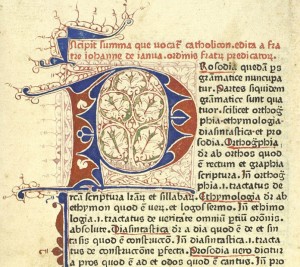 Incipit summa que vocat̄ catholicon. edita a fra
tre iohanne de ianua. ordinis fratrꝫ predicatorꝫ
Prosodia quedā ps̄
gramatice nuncupa
tur. Partes siquidem
gramatice sunt qua
tuor. scilicet orthog̃
phia. ethymologia.
diasintastica et pro
sodia. Orthog̃phia
dr̄ ab orthos quod
ē rectum et graphia
scriptura. Jn orthog̃
phia. i. tractatus de
recta scriptura lrāꝝ et sillabaꝝ. Ethymologia dr̄ ab
ethymon quod ē uerꝫ. et logos sermo. Jn ethimo
logia .i. tractatus de ueritate omniū ptiū orōnis.
absolute. Diasintastica dr̄ a dia quod ē de et sin
tasis quod ē constructō. Jn̄ diasintastica .i. tracta
tus de constructōne pfecta. Prosodia uero dicitur
a pros quod ē ad et odos quod ē cantus. Jn̄ proso